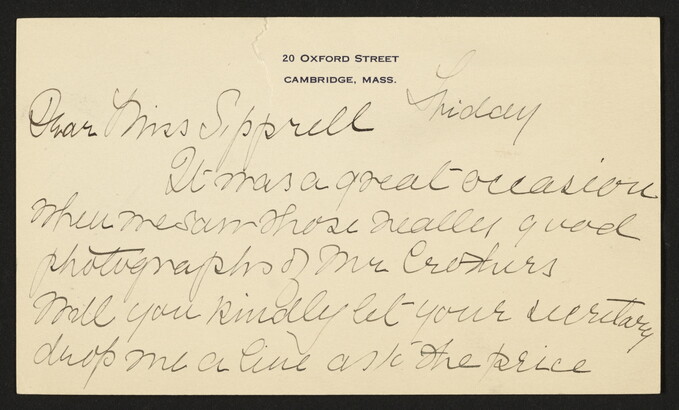 20 OXFORD STREET
CAMBRIDGE, MASS.
Friday
Dear Miss Sipprell
It was a great occasion
when we saw those really good
photographs of Mr Crothers
Will you kindly let your secretary
drop me a line as to the price